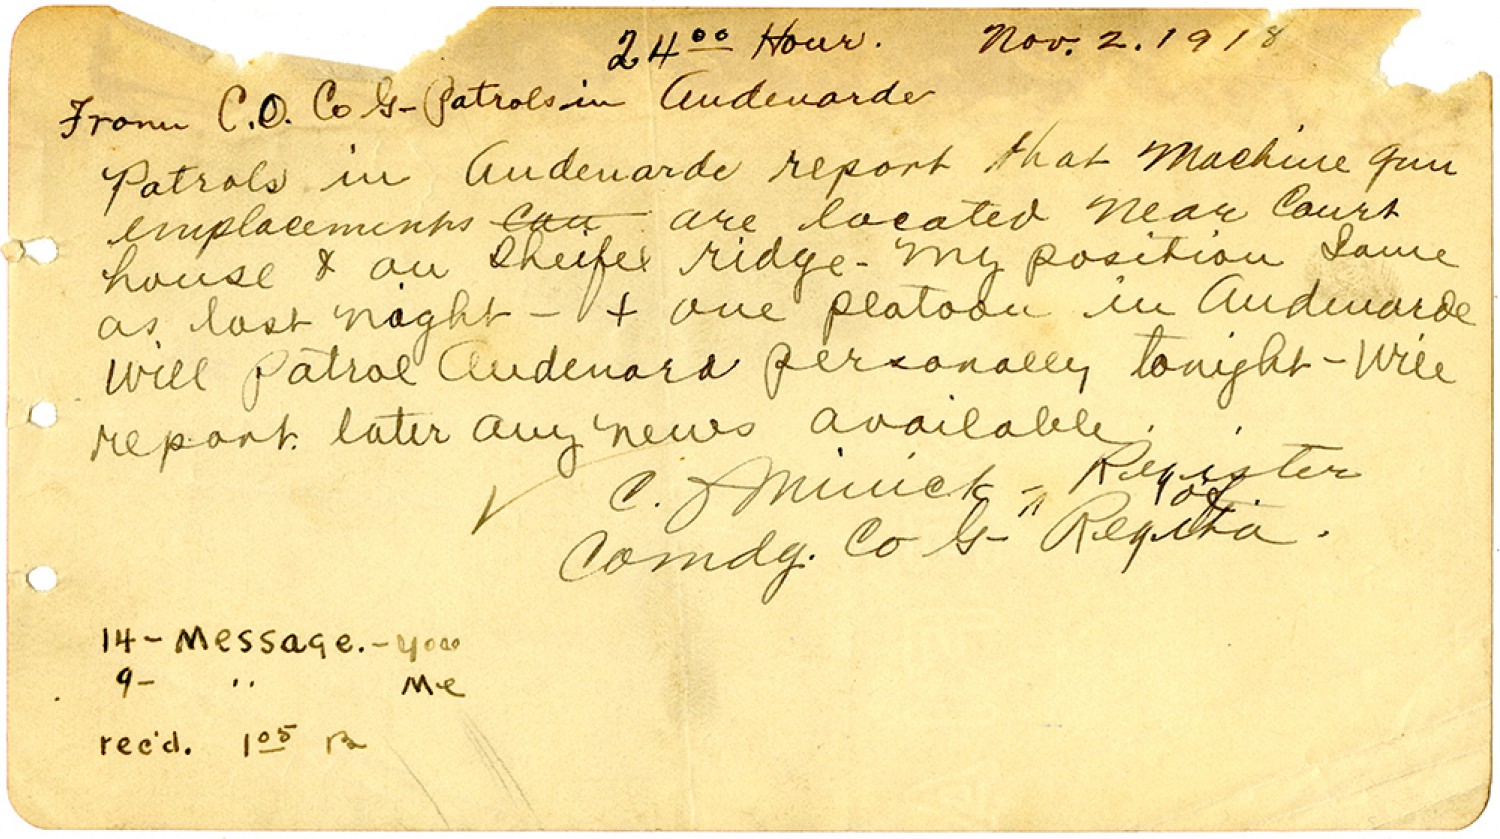 24⁰⁰ Hour. Nov. 2. 1918
From C.O. Co G- Patrols in Audenarde
Patrols in Audenarde report that Machine gun
emplacements are located near Court
house & on ridge - My position Same
as last night - + one platoon in Audenarde
Will patrol Audenard personally tonight - Will
report later any news available.
C. Minick - Register
Comdg. Co G-
14 - Message. - you
9- " Me
rec'd. 1⁰⁵